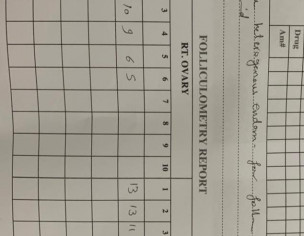 Drug
Am#
heterogenous endom - few foll
FOLLICULOMETRY REPORT
RT. OVARY
3 4 5 6 7 8 9 10 1 2 3
10 9 6 5 13 13 11